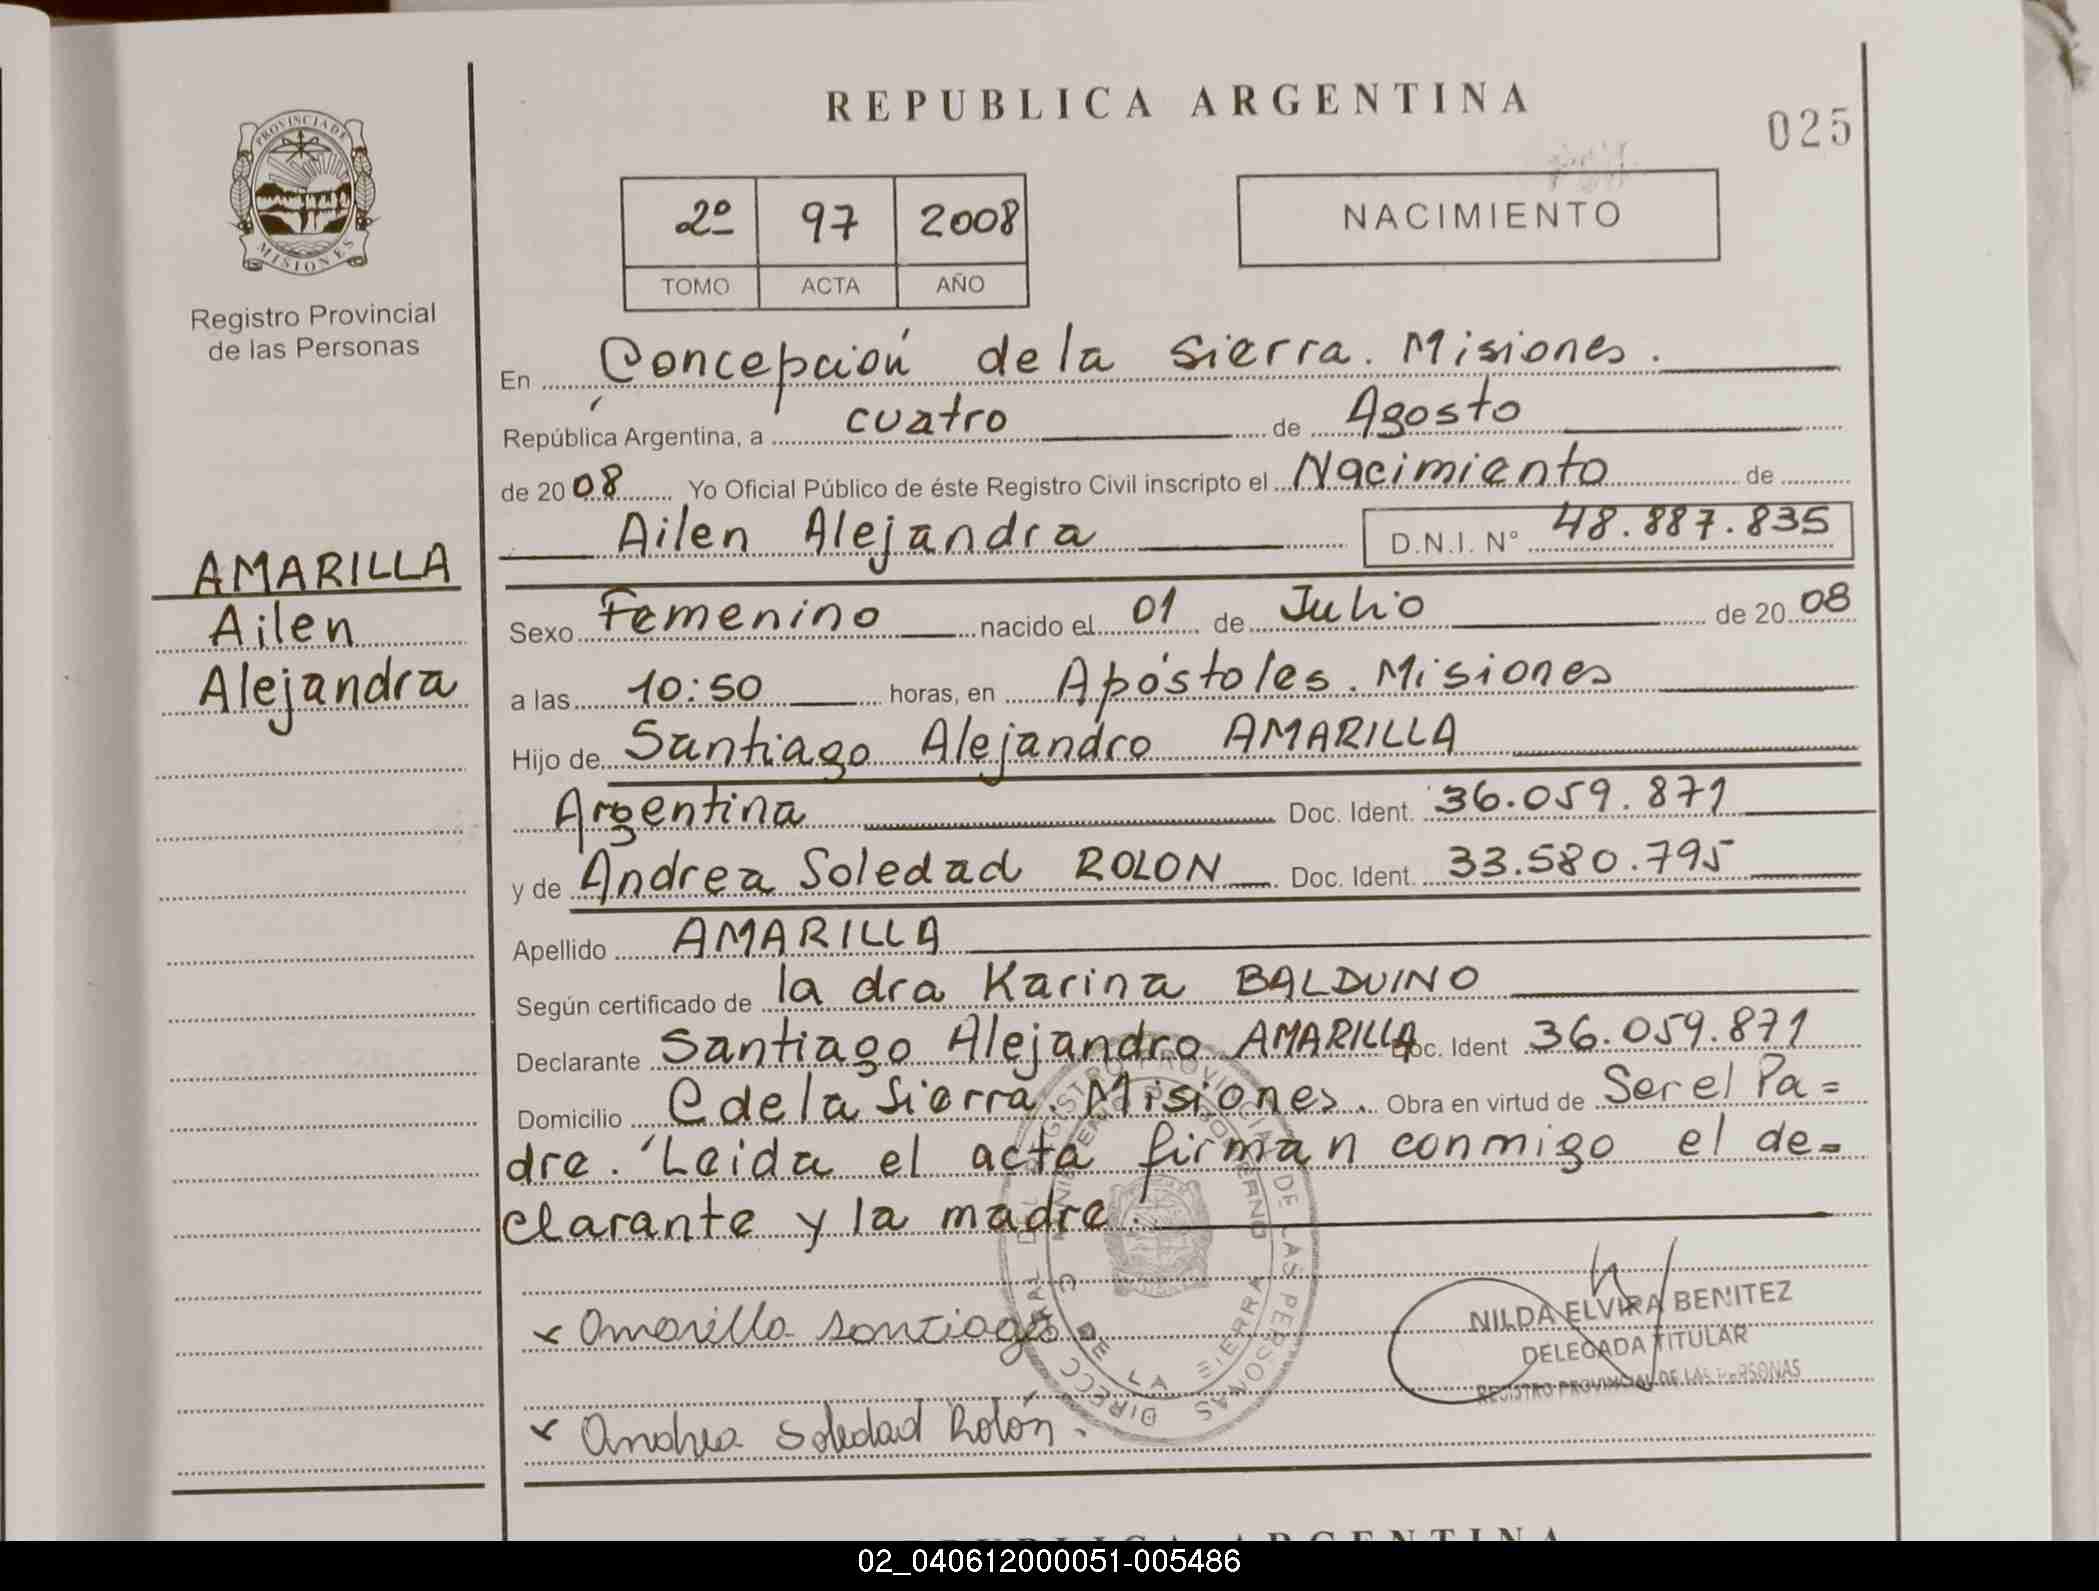 REPUBLICA ARGENTINA
025
PROVINCIA DE
MISIONES
Registro Provincial
de las Personas
2º 97 2008
TOMO ACTA AÑO
NACIMIENTO
En Concepción de la Sierra. Misiones.
República Argentina, a cuatro de Agosto
de 2008 Yo Oficial Público de éste Registro Civil inscripto el Nacimiento de
Ailen Alejandra D.N.I. Nº 48.887.835
AMARILLA
Ailen
Alejandra
Sexo Femenino nacido el 01 de Julio de 2008
a las 10:50 horas, en Apóstoles. Misiones
Hijo de Santiago Alejandro AMARILLA
Argentina Doc. Ident. 36.059.871
y de Andrea Soledad ROLON Doc. Ident. 33.580.795
Apellido AMARILLA
Según certificado de la dra Karina BALDUINO
Declarante Santiago Alejandro AMARILLA Doc. Ident 36.059.871
Domicilio C de la Sierra. Misiones. Obra en virtud de Ser el Pa=
dre. Leida el acta firman conmigo el de=
clarante y la madre.
Amarilla Santiago
NILDA ELVIRA BENITEZ
DELEGADA TITULAR
REGISTRO PROVINCIAL DE LAS PERSONAS
Andrea Soledad Rolón.
REPUBLICA ARGENTINA
02_040612000051-005486